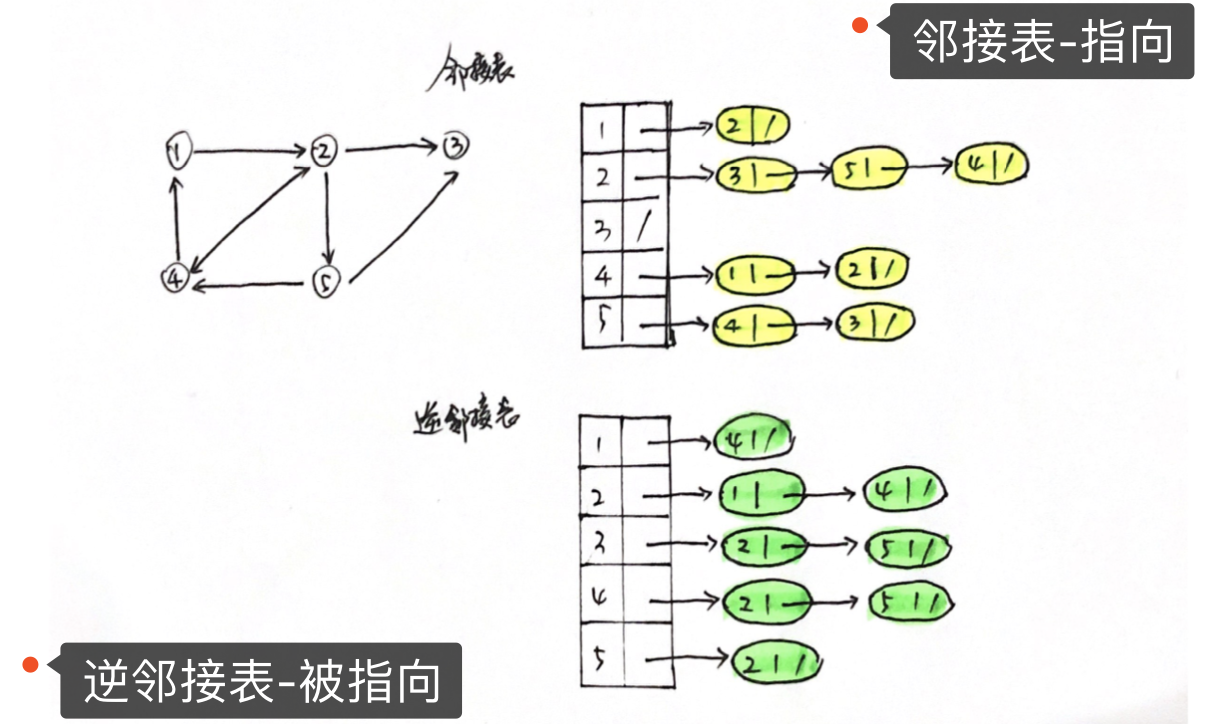 邻接表-指向
邻接表
1 2 3
4 5
1 2 /
2 3 5 4 /
3 /
4 1 2 /
5 4 3 /
逆邻接表
1 4 /
2 1 4 /
3 2 5 /
4 2 5 /
5 2 /
逆邻接表-被指向